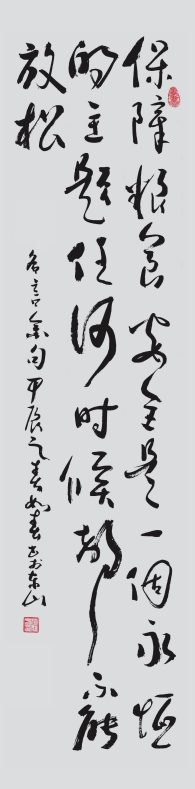 保障粮食安全是一个永恒
的主题任何时候都不能
放松
名言金句甲辰之春如春书于东山